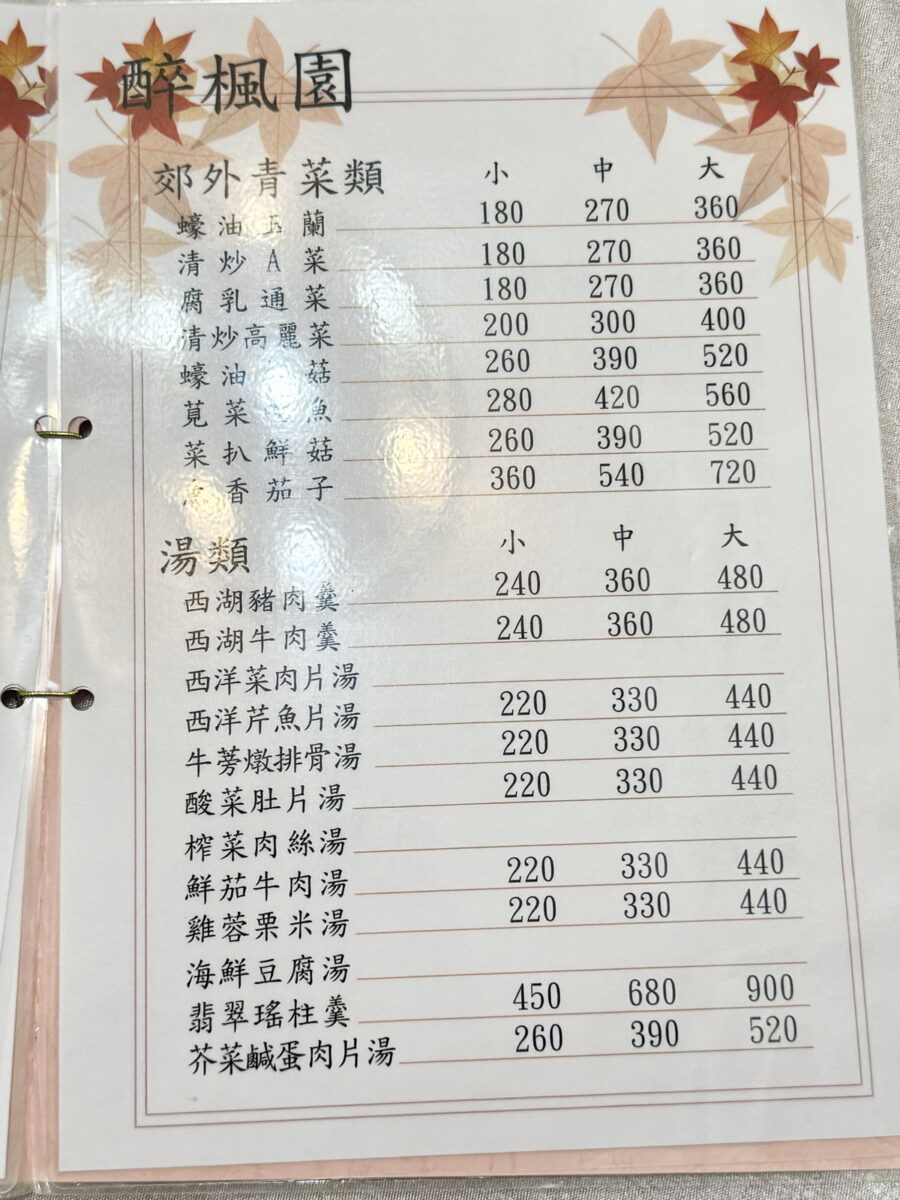 醉楓園
郊外青菜類 小 中 大
蠔油玉蘭 180 270 360
清炒A菜 180 270 360
腐乳通菜 180 270 360
清炒高麗菜 200 300 400
蠔油 菇 260 390 520
莧菜 魚 280 420 560
菜扒鮮菇 260 390 520
魚香茄子 360 540 720
湯類 小 中 大
西湖豬肉羹 240 360 480
西湖牛肉羹 240 360 480
西洋菜肉片湯
西洋芹魚片湯 220 330 440
牛蒡燉排骨湯 220 330 440
酸菜肚片湯 220 330 440
榨菜肉絲湯
鮮茄牛肉湯 220 330 440
雞蓉栗米湯 220 330 440
海鮮豆腐湯
翡翠瑤柱羹 450 680 900
芥菜鹹蛋肉片湯 260 390 520